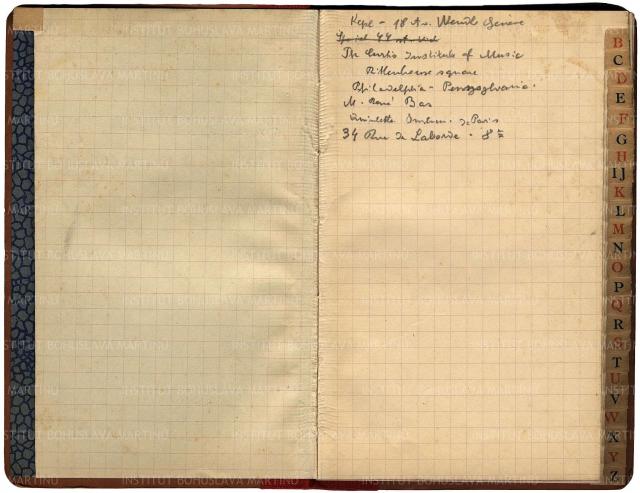 Kepl - 18 Av. Wendt Geneve
The Curtis Institute of Music
Rittenhouse square
Philadelphia - Pensylvania.
M. René Bas
Quintette Instrum. de Paris
34 Rue de Laborde. 8e
B
C
D
E
F
G
H
IJ
K
L
M
N
O
P
Q
R
S
T
U
V
W
X
Y
Z
INSTITUT BOHUSLAVA MARTINŮ